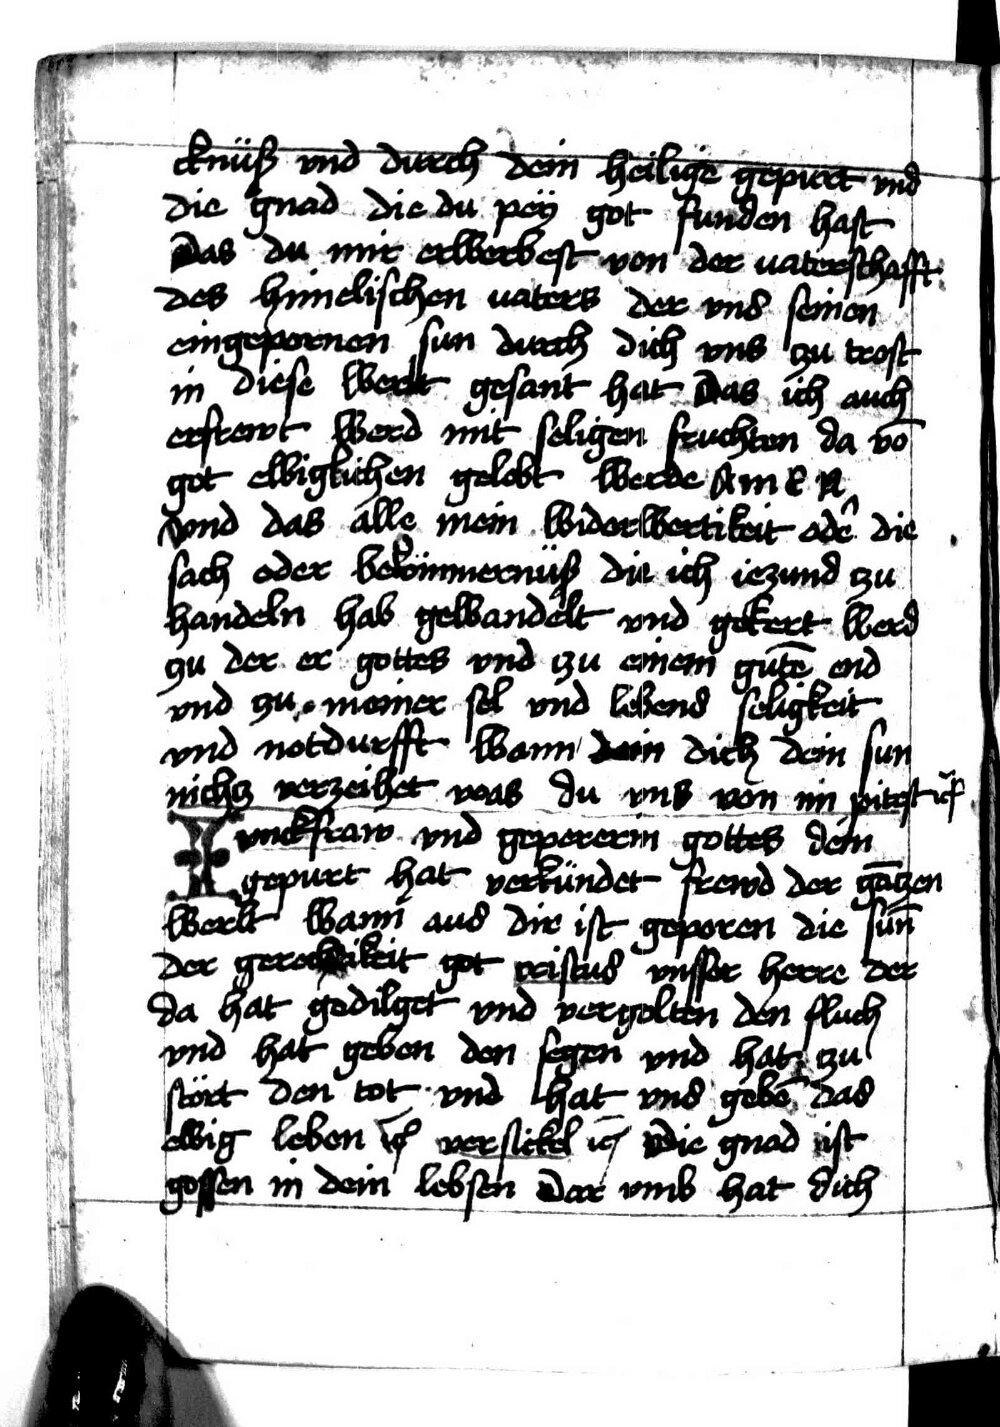 cknüß vnd durch dein heilige gepurt vnd
die gnad die du pey got funden hast
Das du mir erwerbest von der vaterschafft
des himelischen vaters der vns seinen
eingepornen sun durch dich vns zu trost
in diese werlt gesant hat Das ich auch
erfrewt werd mit seligen fruchten da vō
got ewiglichen gelobt werde AmEN
Vnd das alle mein widerwertikeit odē die
sach oder bekömmernüß die ich iezund zu
handeln hab gewandelt vnd gekert werd
zu der er gottes vnd zu einem gutē end
vnd zu meiner sel vnd lebens seligkeit
vnd notdurfft wann dich dein sun
nichtz verzeihet was du vns von im pitest
Iunckfraw vnd gepererin gottes dein
gepurt hat verkündet frewd der gātzen
werlt wann aus dir ist geporen die sun̄
der gerechtikeit got cristus vnsser herre der
da hat gedilget vnd vergolten den fluch
vnd hat geben den segen vnd hat zu
stört den tot vnd hat vns gebē das
ewig leben versickel Die gnad ist
gossen in dein lebsen Dar vmb hat dich